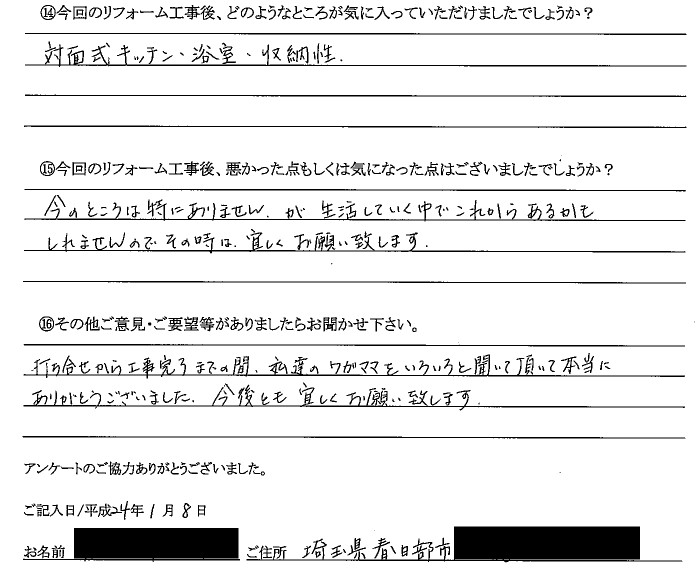 ⑭今回のリフォーム工事後、どのようなところが気に入っていただけましたでしょうか?
対面式キッチン・浴室・収納性.
⑮今回のリフォーム工事後、悪かった点もしくは気になった点はございましたでしょうか?
今のところは特にありません. が 生活していく中でこれからあるかも
しれませんのでその時は. 宜しくお願い致します.
⑯その他ご意見・ご要望等がありましたらお聞かせ下さい。
打ち合せから工事完了までの間、私達のワガママをいろいろと聞いて頂いて本当に
ありがとうございました. 今後とも 宜しくお願い致します.
アンケートのご協力ありがとうございました。
ご記入日/平成24年1月8日
お名前 ご住所 埼玉県春日部市